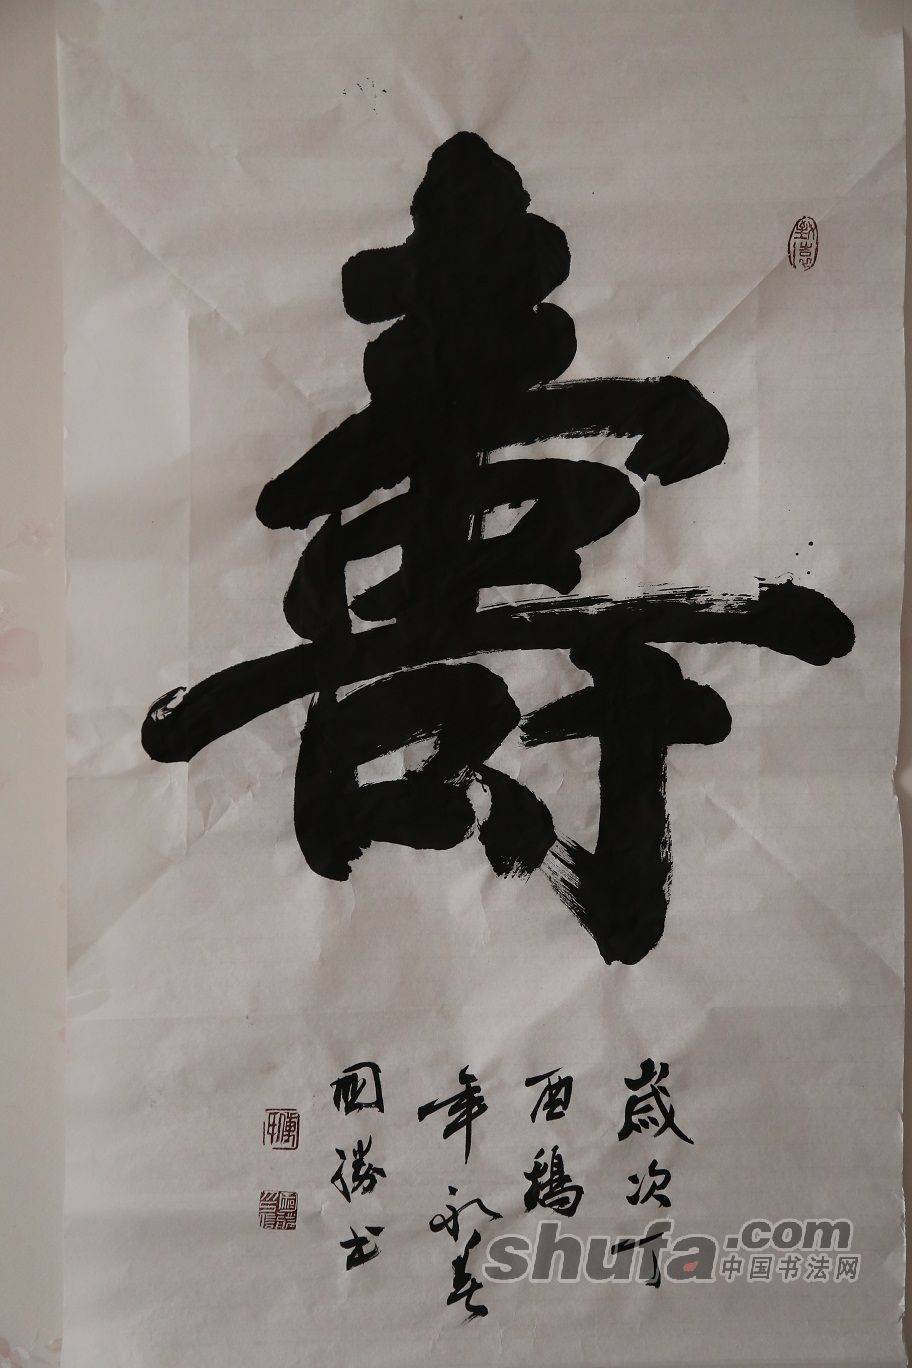 壽
歲次丁
酉鷄
年初春
國勝書
致遠
shufa.com
中国书法网